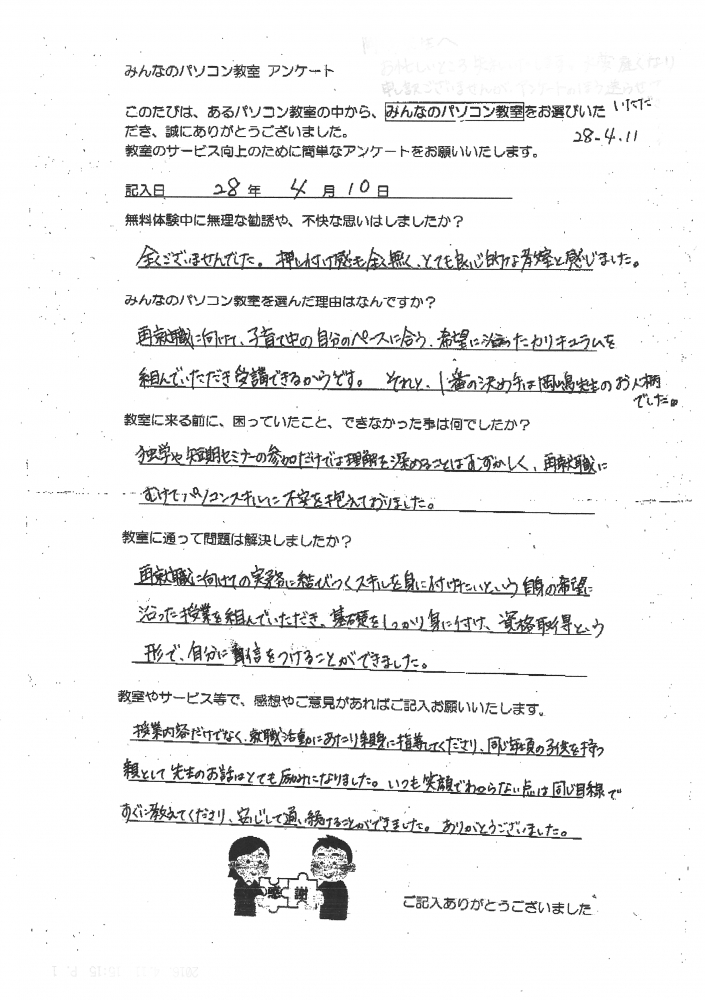 みんなのパソコン教室 アンケート
このたびは、あるパソコン教室の中から、みんなのパソコン教室をお選びいた いただ
だき、誠にありがとうございました。
28-4.11
教室のサービス向上のために簡単なアンケートをお願いいたします。
記入日 28 年 4 月 10 日
無料体験中に無理な勧誘や、不快な思いはしましたか？
全くございませんでした。押し付け感も全く無く、とても良心的な教室と感じました。
みんなのパソコン教室を選んだ理由はなんですか？
再就職に向けて、子育て中の自分のペースに合う、希望に沿ったカリキュラムを
組んでいただき受講できるからです。それと、1番の決め手は岡嶋先生のお人柄
でした。
教室に来る前に、困っていたこと、できなかった事は何でしたか？
独学や短期セミナーの参加だけでは理解を深めることはむずかしく、再就職に
むけてパソコンスキルに不安を抱えておりました。
教室に通って問題は解決しましたか？
再就職に向けての実務に結びつくスキルを身に付けたいという自身の希望に
沿った授業を組んでいただき、基礎をしっかり身に付け、資格取得という
形で、自分に自信をつけることができました。
教室やサービス等で、感想やご意見があればご記入お願いいたします。
授業内容だけでなく、就職活動にあたり親身に指導してくださり、同じ年頃の子供を持つ
親として先生のお話はとても励みになりました。いつも笑顔でわからない点は同じ目線で
すぐに教えてくださり、安心して通い続けることができました。ありがとうございました。
感謝
ご記入ありがとうございました